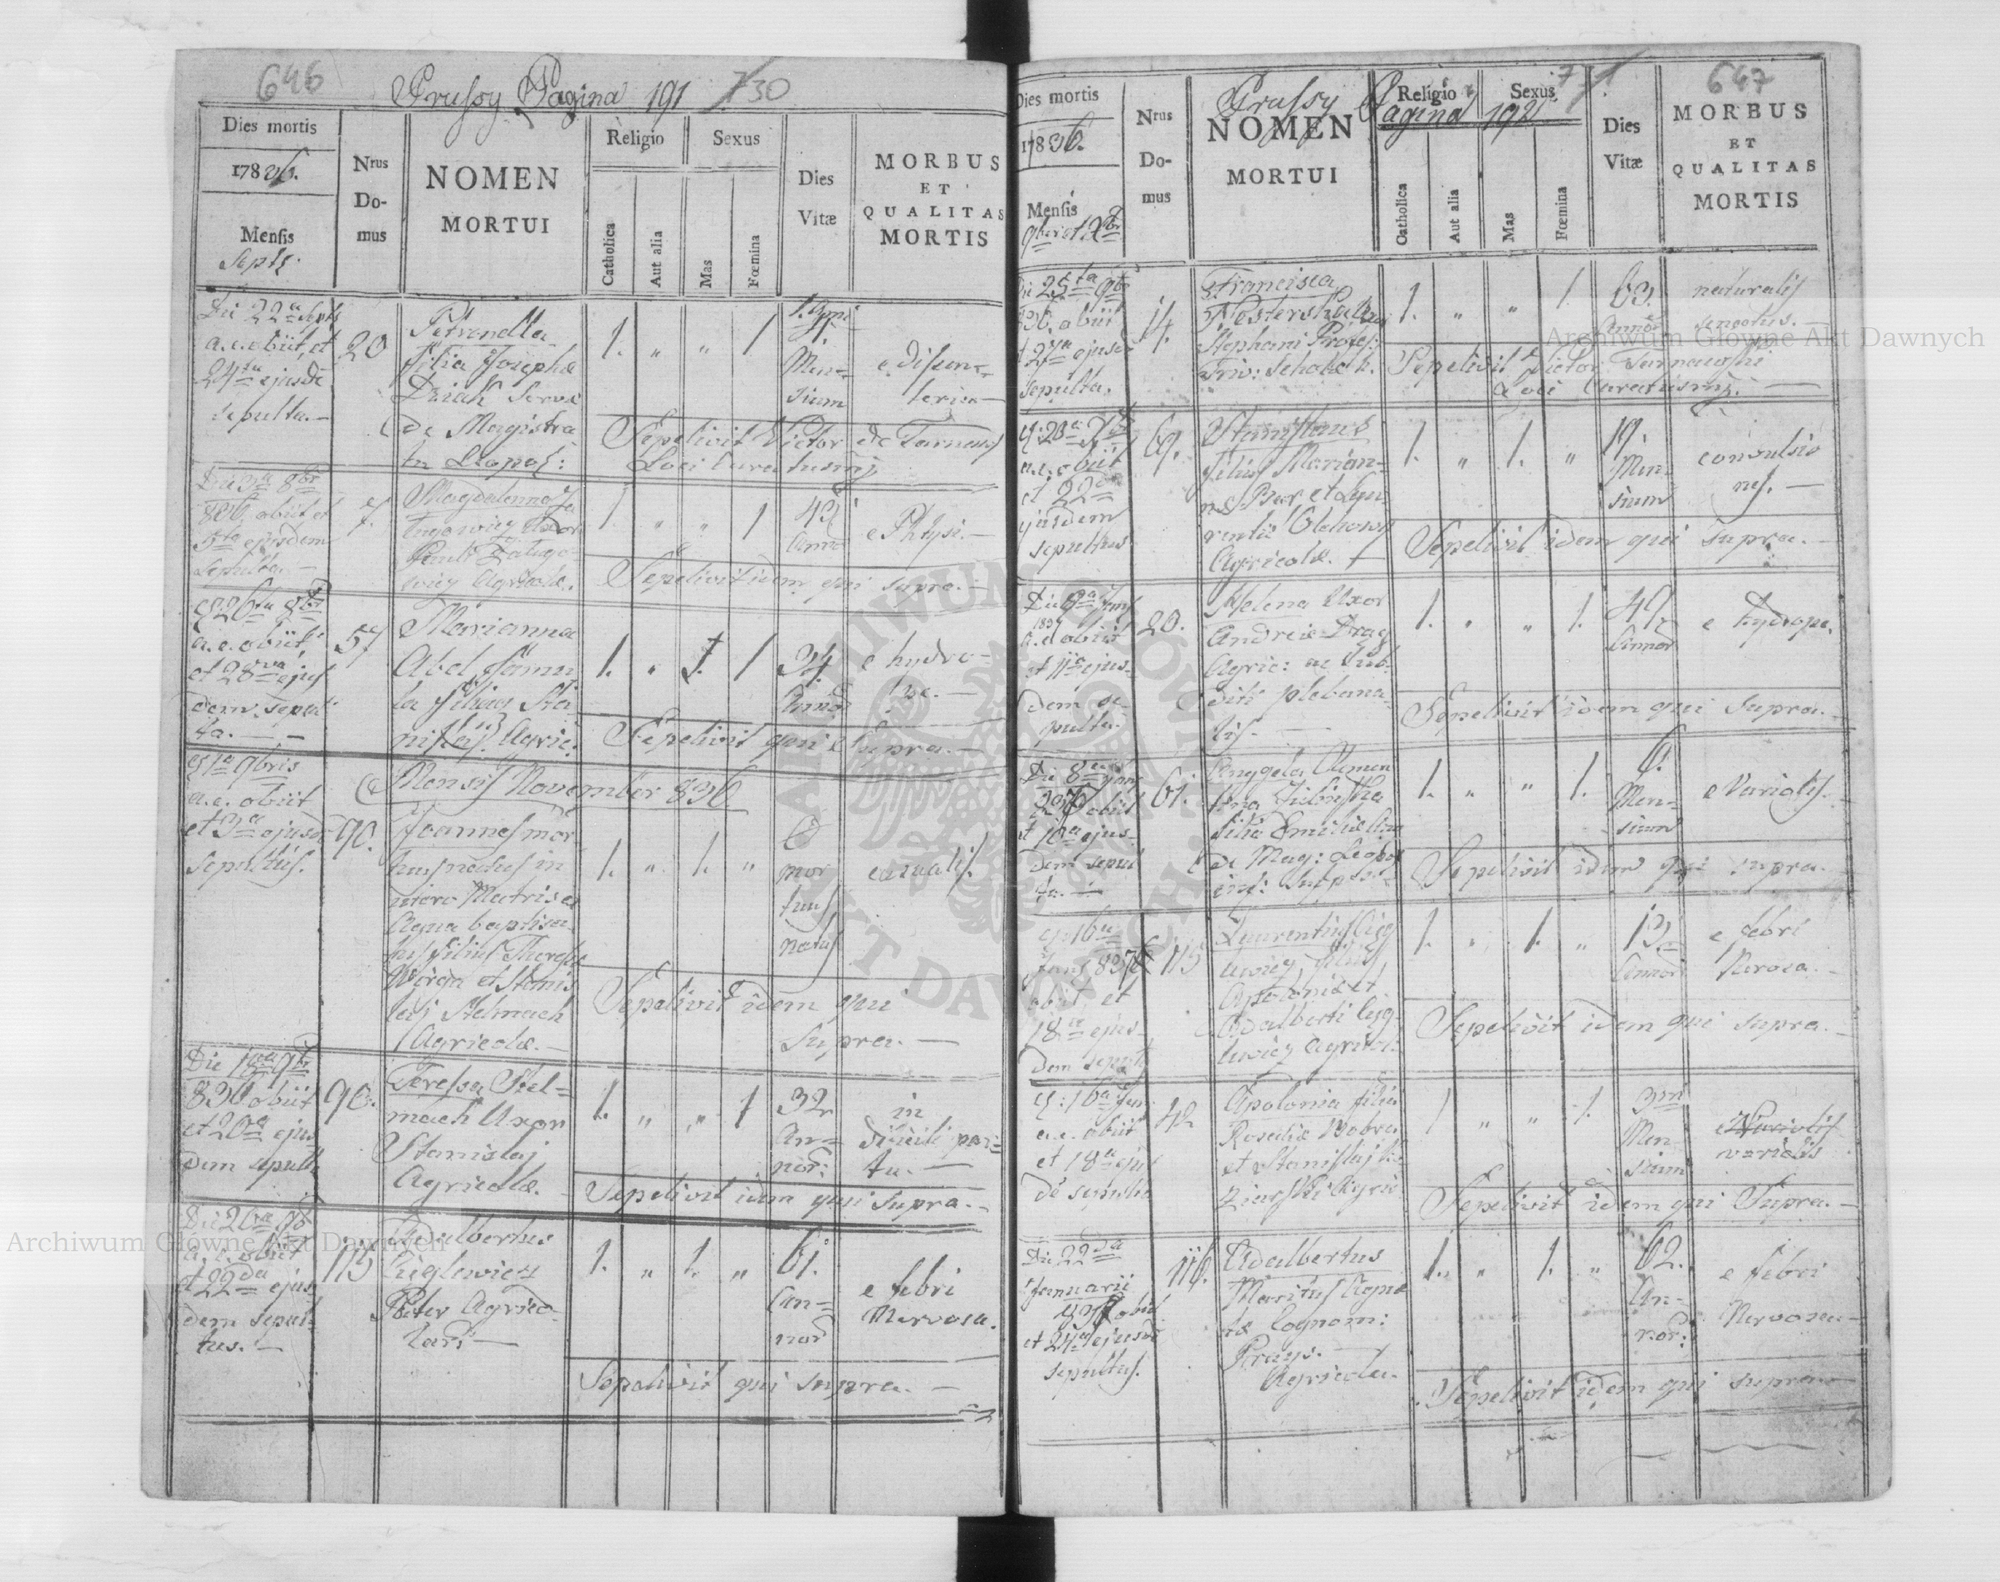 646
Prussy Pagina 191 730
Dies mortis
17836.
Mensis
Septr:
Nrus
Do-
mus
NOMEN
MORTUI
Religio
Catholica
Aut alia
Sexus
Mas
Fœmina
Dies
Vitæ
MORBUS
ET
QUALITAS
MORTIS
Die 22a Septr
a.c. obiit, et
24ta ejusde
sepulta.—
20
Petronella
filia Josephæ
Dziak Servæ
de Magistra
tu Leopol:
1. „ „ 1
Men=
sium
e disen=
terica—
Sepelivit Victor de Tarnaws
Loci Curatus mp
Die 3a 8br
836 obiit et
5ta ejusdem
sepulta.—
7.
Magdalenna
Uxor
Pauli
Agricolæ.
1 „ „ 1
43
Anno
e Phtysi.—
Sepelivit idem qui supra.
26ta 8br
a.c. obiit,
et 28va ejus
dem sepul
ta.—
57
Marianna
Abel famu
la filia Sta
nislai Agric:
1. „ 1
34
Anno
e hydro-
pe.—
Sepelivit qui supra.—
1a 9bris
a.c. obiit
et 3a ejusd
sepultus.
90.
Mensis November 836
Joannes mor
tuus natus in
utero Matris et
Aqua baptisa
tus filius Theresiæ
et Stanis
lai Stelmach
Agricolæ.—
1. „ 1. „
mor
tuus
natus
casualis.
Sepelivit idem qui
supra.—
Die 18va 9br
836 obiit
et 20a ejus
dem sepulta
90.
Teressa Stel=
mach Uxor
Stanislai
Agricolæ.
1. „ „ 1
32
An=
nor:
in
dificili par=
tu.—
Sepelivit idem qui supra.—
Die 20ma 9b
a.c. obiit
et 22da ejus
dem sepul=
tus.—
115
Adalbertus
Cuglewicz
Pater Agrico-
larum—
1. „ 1. „
61.
An=
nor
e febri
Nervosa.
Sepelivit qui supra.—
647
Prussy Pagina 192
Dies mortis
17836.
Mensis
9bris et Xbr
Nrus
Do-
mus
NOMEN
MORTUI
Religio
Catholica
Aut alia
Sexus
Mas
Fœmina
Dies
Vitæ
MORBUS
ET
QUALITAS
MORTIS
Die 25ta 9br
836. obiit
et 27a ejusd
sepulta.
14.
Francisca
Stephani Profes:
Triv: Scholæ
1. „ „ 1
63.
Annor
naturalis
senectus.—
Sepelivit Victor Tarnawski
Loci Curatus mp.—
20a Xbr
a.c. obiit
et 22da
ejusdem
sepultus
69.
Stanislaus
filius Marian-
næ
Agricolæ.—
1. „ 1. „
19.
Men
sium
convulsio
nes.—
Sepelivit idem qui supra.—
Die 9a Jan
1837
a.c. obiit
et 11a ejus-
dem se-
pulta.
20.
Helena Uxor
Andreæ Drag
Agric: ac Sub
diti plebana
lis.—
1. „ „ 1.
49.
Annor
e hydrope.
Sepelivit idem qui supra.—
Die 8va Jan
837 obiit
et 10a ejus-
dem sepul
ta.—
61.
Angela Clemen
tina
filia Emiliæ
de Mag: Leopol
1. „ „ 1.
6.
Men-
sium
e Variolis.—
Sepelivit idem qui supra.—
16ta
Jan: 837
obiit et
18va ejus
dem sepult
115
Laurentius Cug
lewicz filius
Apoloniæ et
Adalberti Cug-
lewicz Agricol:
1. „ 1. „
13.
Annor
e febri
Nervosa.—
Sepelivit idem qui supra.—
16ta Jan
a.c. obiit
et 18va ejus
de sepulta
42
Apolonia filia
Rosaliæ Bobra
et Stanislai
Agric
1 „ „ 1.
3um
Men
sium
variolis
Sepelivit idem qui Supra.—
Die 22da
Januarii
837 obiit
et 24ta ejusd
sepultus.
116.
Adalbertus
Maritus Agne
tæ Cognom:
Agricola.
1. „ 1. „
62.
An-
nor:
e febri
Nervosa—
Sepelivit idem qui supra—
ARCHIWUM GŁÓWNE AKT DAWNYCH
Archiwum Główne Akt Dawnych
Archiwum Główne Akt Dawnych